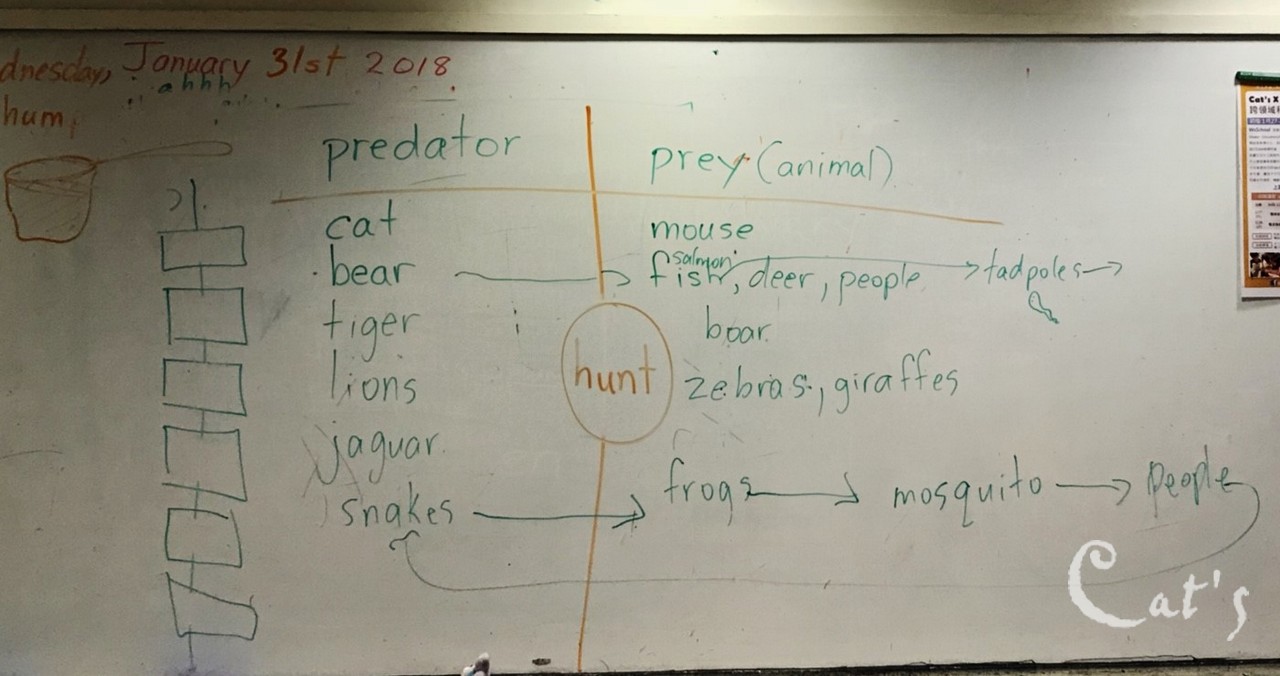 dnesday, January 31st 2018
ahhh
hum
predator
prey (animal)
cat
mouse
bear
salmon
fish, deer, people
tadpoles
tiger
boar
hunt
lions
zebras, giraffes
jaguar
snakes
frogs
mosquito
people
Cat's
Cat's X
跨領域